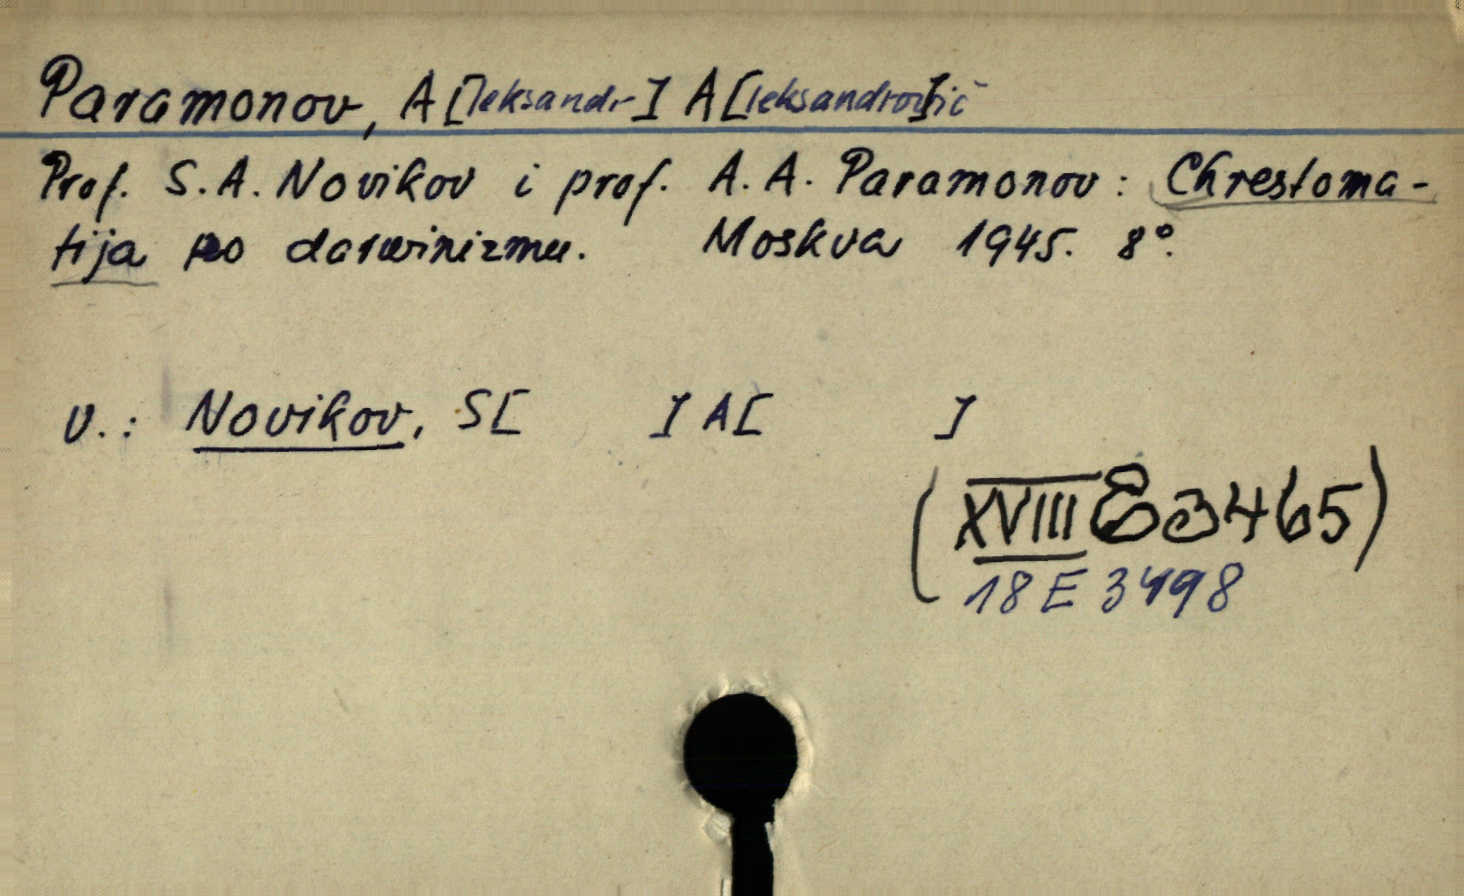 Paramonov, A[leksandr] A[leksandrov]ič
Prof. S. A. Novikov i prof. A. A. Paramonov: Chrestoma-
tija po darwinizmu. Moskva 1945. 8°.
v.: Novikov, S[ ] A[ ]
(XVIII E 3465)
18 E 3498